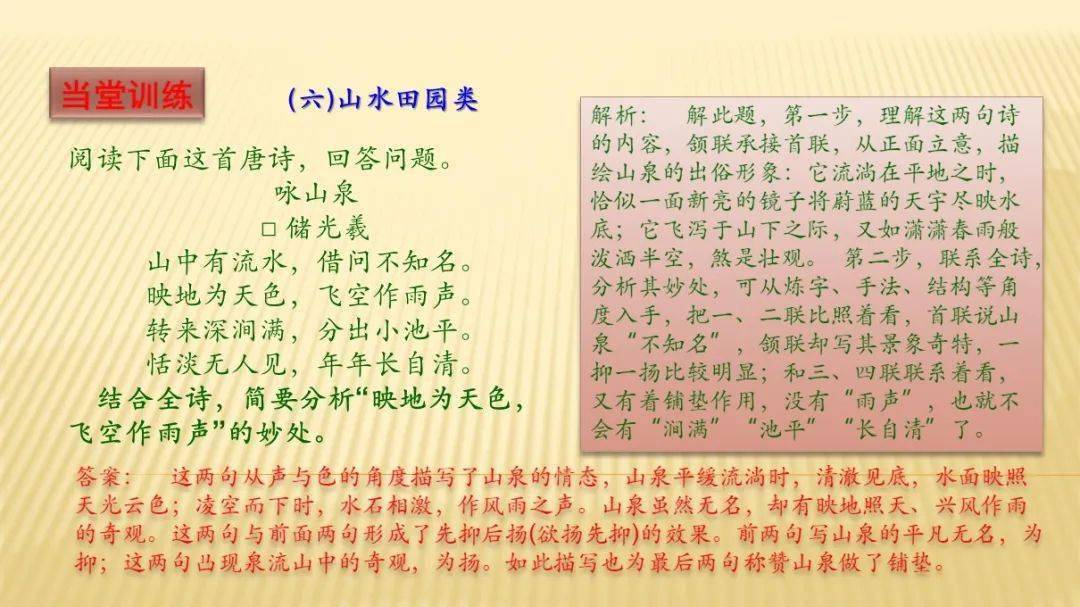 当堂训练
(六)山水田园类
阅读下面这首唐诗，回答问题。
咏山泉
□ 储光羲
山中有流水，借问不知名。
映地为天色，飞空作雨声。
转来深涧满，分出小池平。
恬淡无人见，年年长自清。
结合全诗，简要分析“映地为天色，
飞空作雨声”的妙处。
解析： 解此题，第一步，理解这两句诗
的内容，颔联承接首联，从正面立意，描
绘山泉的出俗形象：它流淌在平地之时，
恰似一面新亮的镜子将蔚蓝的天宇尽映水
底；它飞泻于山下之际，又如潇潇春雨般
泼洒半空，煞是壮观。 第二步，联系全诗，
分析其妙处，可从炼字、手法、结构等角
度入手，把一、二联比照着看，首联说山
泉“不知名”，颔联却写其景象奇特，一
抑一扬比较明显；和三、四联联系着看，
又有着铺垫作用，没有“雨声”，也就不
会有“涧满”“池平”“长自清”了。
答案： 这两句从声与色的角度描写了山泉的情态，山泉平缓流淌时，清澈见底，水面映照
天光云色；凌空而下时，水石相激，作风雨之声。山泉虽然无名，却有映地照天、兴风作雨
的奇观。这两句与前面两句形成了先抑后扬(欲扬先抑)的效果。前两句写山泉的平凡无名，为
抑；这两句凸现泉流山中的奇观，为扬。如此描写也为最后两句称赞山泉做了铺垫。